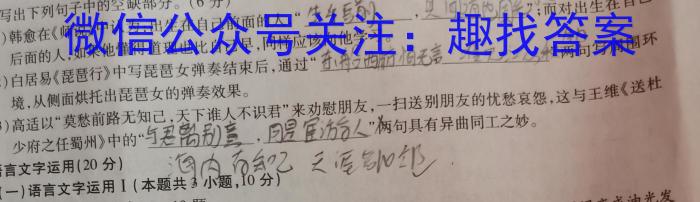 写出下列句子中的空缺部分。(6分)
)韩愈在《师
在自己前面的人“生乎吾前
”;而对出生在自己
后面的人,如果他懂得道理也比
早,同样应该
他学
微信公众号关注:趣找答案
2)白居易《琵琶行》中写琵琶女弹奏结束后,通过“东舟西舫悄无言
”两句写周围环
境,从侧面烘托出琵琶女的弹奏效果。
3)高适以“莫愁前路无知己,天下谁人不识君”来劝慰朋友,一扫送别朋友的忧愁哀怨,这与王维《送杜
少府之任蜀州》中的“与君离别意,同是宦游人”两句具有异曲同工之妙。
海内存知己 天涯
语言文字运用(20分)
(一)语言文字运用Ⅰ(本题共3小题,10分)